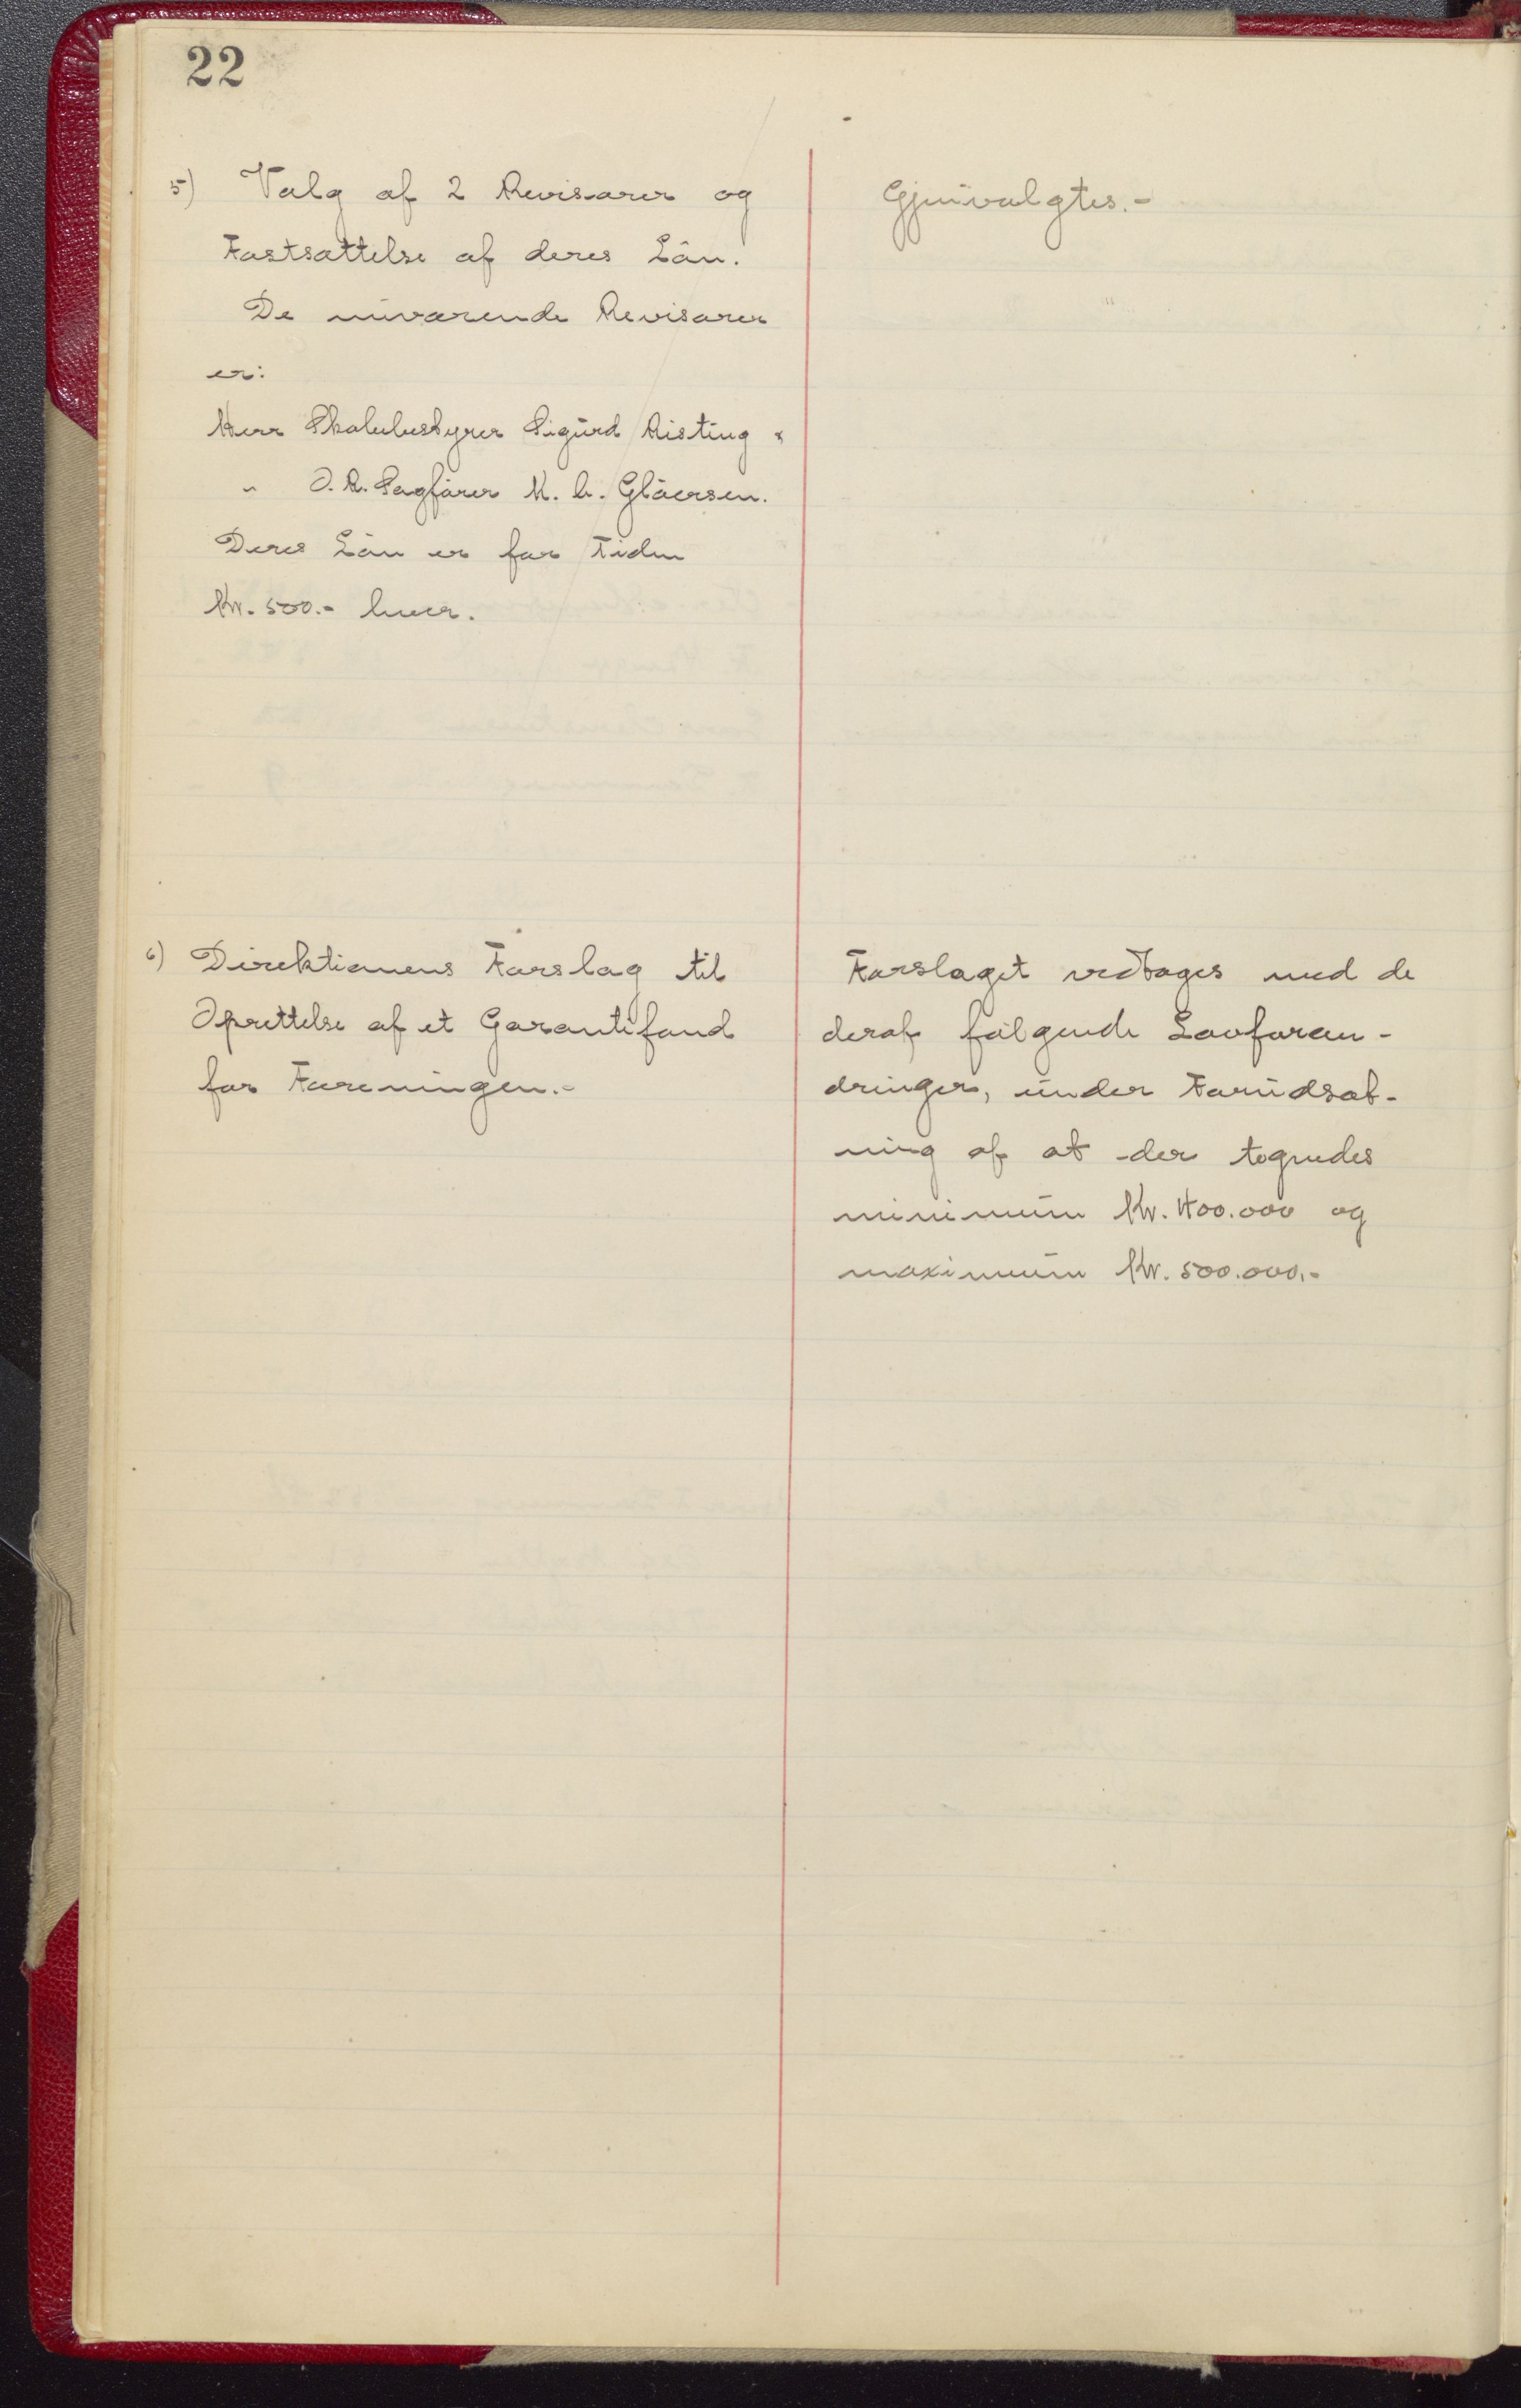 22
5) Valg af 2 Revisorer og
Fastsættelse af deres Løn.
De nuværende Revisorer
er:
Herr Skolebestyrer Sigurd Risting &
" O.R. Sagfører K. C. Gløersen.
Deres Løn er for Tiden
Kr. 500.- hver.
Gjenvalgtes.-
6) Direktionens Forslag til
Oprettelse af et Garantifond
for Foreningen.-
Forslaget vedtages med de
deraf følgende Lovforan-
dringer, under Forudsæt-
ning af at der tegnedes
minimum Kr. 400.000 og
maximum Kr. 500.000.-